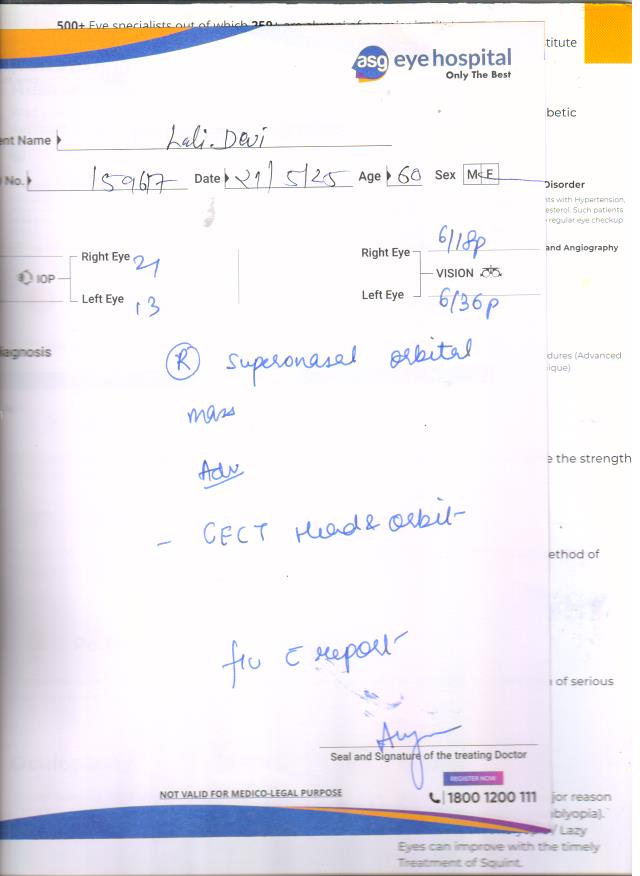 500+ Eye specialists out of which 250+ are alumni of
titute
asg eye hospital
Only The Best
betic
ent Name Lali. Devi
No. 15967 Date 21/5/25 Age 60 Sex M F
Disorder
ts with Hypertension,
esterol. Such patients
regular eye checkup
and Angiography
IOP
Right Eye 21
Left Eye 13
VISION
Right Eye 6/18p
Left Eye 6/36p
iagnosis
dures (Advanced
ique)
(R) Superonasal orbital
mass
Adv
e the strength
- CECT Head & orbit
ethod of
f/u c report
of serious
Seal and Signature of the treating Doctor
REGISTER NOW
NOT VALID FOR MEDICO-LEGAL PURPOSE
1800 1200 111
jor reason
blyopia).
/ Lazy
Eyes can improve with the timely
Treatment of Squint.